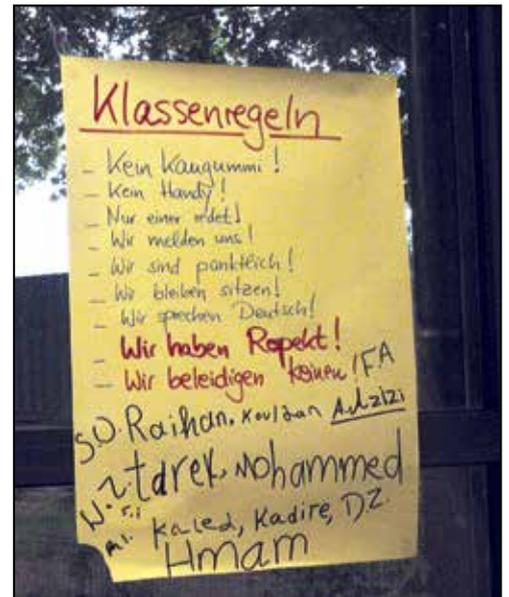 Klassenregeln
- Kein Kaugummi!
- Kein Handy!
- Nur einer redet!
- Wir melden uns!
- Wir sind pünktlich!
- Wir bleiben sitzen!
- Wir sprechen Deutsch!
- Wir haben Repekt!
- Wir beleidigen keinen! F.A
SO. Raihan.
tarek, Mohammed
Kaled, Kadire, DZ.
Hmam